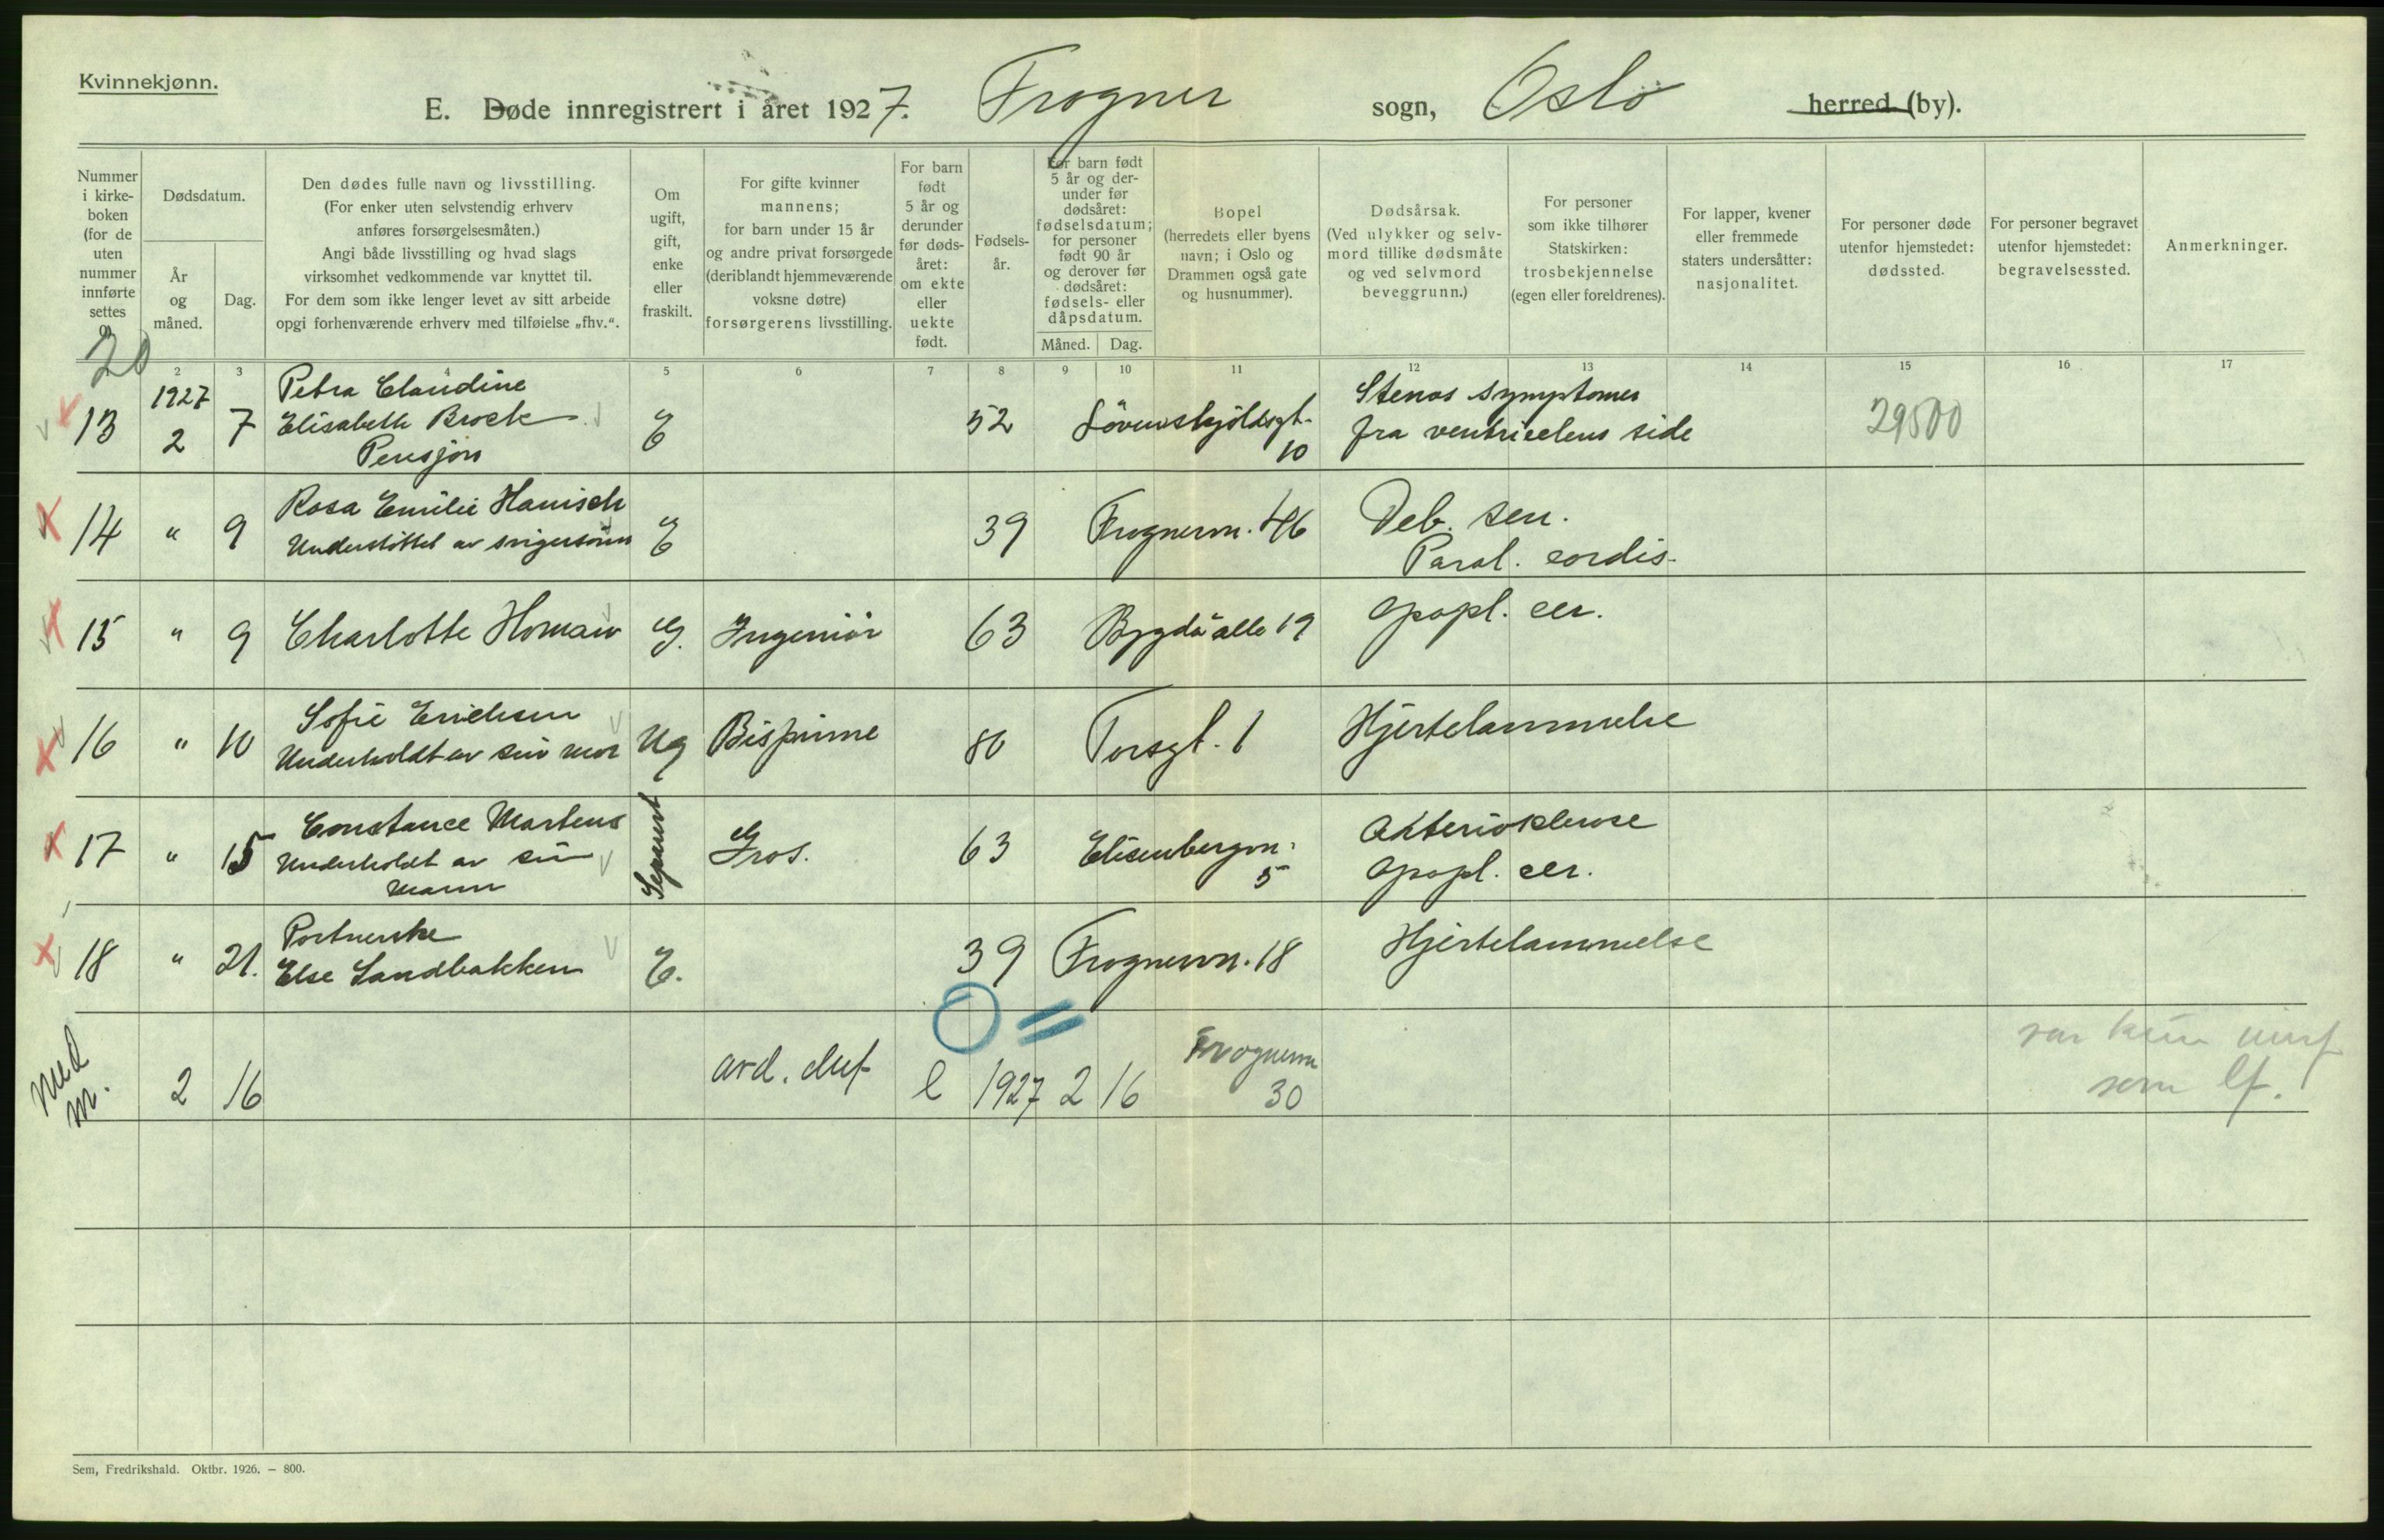 Kvinnekjønn.
E. Døde innregistrert i året 1927. Frogner sogn, Oslo herred (by).
Nummer i kirkeboken (for de uten nummer innførte settes 0).
Dødsdatum.
År og måned.
Dag.
Den dødes fulle navn og livsstilling.
(For enker uten selvstendig erhverv
anføres forsørgelsesmåten.)
Angi både livsstilling og hvad slags
virksomhet vedkommende var knyttet til.
For dem som ikke lenger levet av sitt arbeide
opgi forhenværende erhverv med tilføielse „fhv.“.
Om ugift, gift, enke eller fraskilt.
For gifte kvinner
mannens;
for barn under 15 år
og andre privat forsørgede
(deriblandt hjemmeværende
voksne døtre)
forsørgerens livsstilling.
For barn født 5 år og derunder før dødsåret: om ekte eller uekte født.
Fødselsår.
For barn født 5 år og derunder før dødsåret: fødselsdatum; for personer født 90 år og derover før dødsåret: fødsels- eller dåpsdatum.
Måned. Dag.
Bopel
(herredets eller byens
navn; i Oslo og
Drammen også gate
og husnummer).
Dødsårsak.
(Ved ulykker og selvmord tillike dødsmåte
og ved selvmord
beveggrunn.)
For personer
som ikke tilhører
Statskirken:
trosbekjennelse
(egen eller foreldrenes).
For lapper, kvener
eller fremmede
staters undersåtter:
nasjonalitet.
For personer døde
utenfor hjemstedet:
dødssted.
For personer begravet
utenfor hjemstedet:
begravelsessted.
Anmerkninger.
20
2 3 4 5 6 7 8 9 10 11 12 13 14 15 16 17
13 1927 2 7 Petra Claudine Elisabeth Brock Pensjon E 52 Løvenskjoldsgt. 10 Stenos symptomer fra ventricelens side 29500
14 " 9 Rosa Emilie Hanisch Understøttet av svigersønn E 39 Frognerv. 46 Deb. sen. Paral. cordis.
15 " 9 Charlotte Homan G. Ingeniør 63 Bygdø alle 19 Apopl. cer.
16 " 10 Sofie Erichsen Underholdt av sin mor Ug Bispinne 80 Torsgt. 1 Hjertelammelse
17 " 15 Constance Martens Underholdt av sin mann Separert Gros. 63 Elisenbergvn. 5 Arteriosclerose Apopl. cer.
18 " 21. Portnerske Else Sandbakken E. 39 Frognervn. 18 Hjertelammelse
med m. 2 16 e 1927 2 16 Frognervn 30 var kun
som lf.
Sem, Fredrikshald. Oktbr. 1926. — 800.